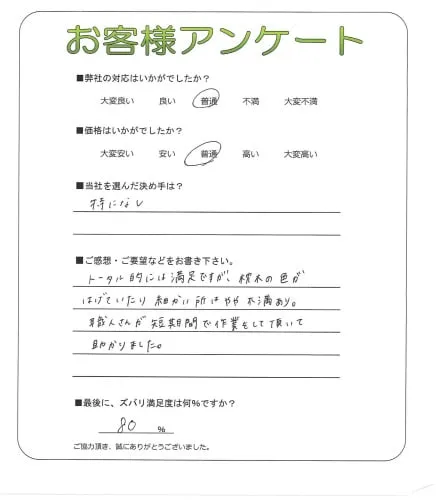 お客様アンケート
■弊社の対応はいかがでしたか?
大変良い 良い 普通 不満 大変不満
■価格はいかがでしたか?
大変安い 安い 普通 高い 大変高い
■当社を選んだ決め手は?
特になし
■ご感想・ご要望などをお書き下さい。
トータル的には満足ですが、枕木の色が
はげていたり細かい所はやや不満あり。
職人さんが短期間で作業もして頂いて
助かりました。
■最後に、ズバリ満足度は何%ですか?
80 %
ご協力頂き、誠にありがとうございました。